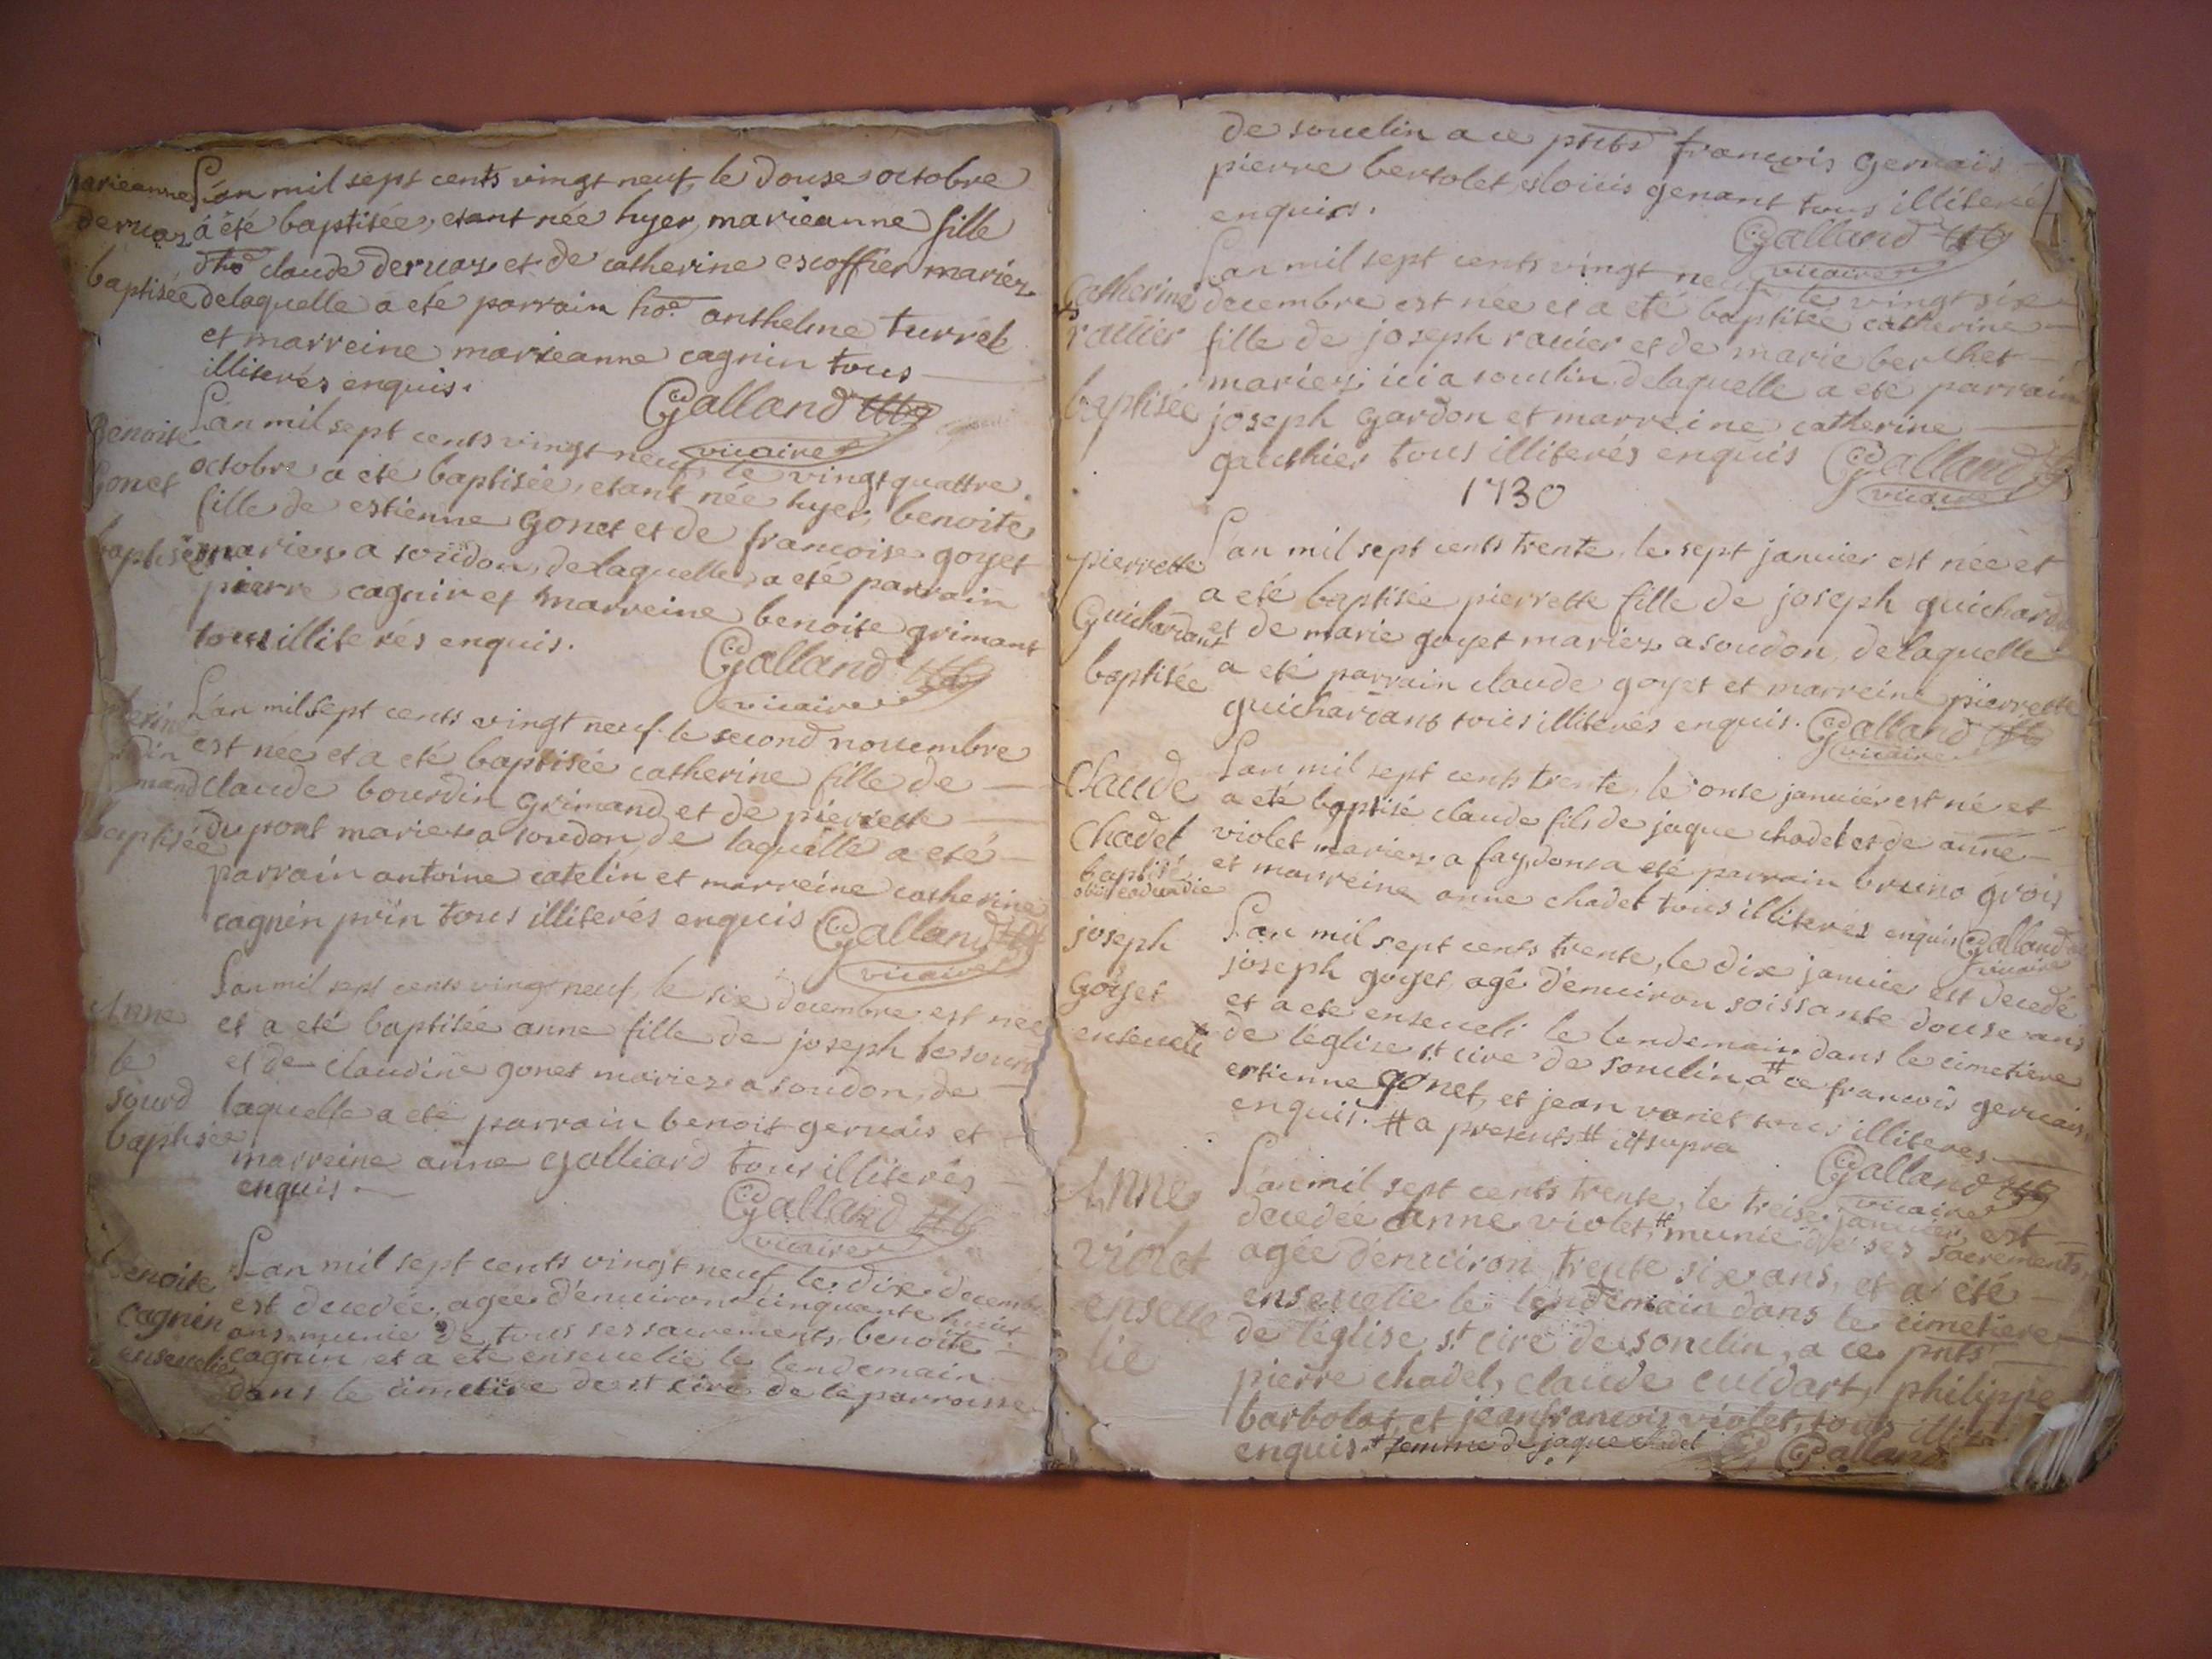 marieanne
deruaz
baptisée
L'an mil sept cents vingt neuf, le douse octobre
á été baptisée, etant née hyer, marieanne fille
d'ho^e claude deruaz et de catherine escoffier mariéz
delaquelle a eté parrain ho^e anthelme turrel
et marreine marieanne cagnin tous
illiterés enquis.
Galland
vicaire
Benoite
Gonet
baptisée
L'an mil sept cents vingt neuf, le vingt quattre
octobre a eté baptisée, etant née hyer, benoite
fille de estienne Gonet et de francoise goyet
mariez a soudon, delaquelle a eté parrain
pierre cagnin et marreine benoite grimant
tous illiterés enquis.
Galland
vicaire
baptisée
L'an mil sept cents vingt neuf le second nouembre
est née et a eté baptisée catherine fille de
claude bourdin Grimand et de pierrette
dupont mariez a soudon de laquelle a eté
parrain antoine catelin et marreine catherine
cagnin prin tous illiterés enquis
Galland
vicaire
Anne
le
sourd
baptisée
L'an mil sept cents vingt neuf, le six decembre est née
et a eté baptisée anne fille de joseph le sourd
et de claudine gonet mariez a soudon, de
laquelle a eté parrain benoit geruais et
marreine anne galliard tous illiterés
enquis
Galland
vicaire
benoite
cagnin
enseuelie
L'an mil sept cents vingt neuf le dix decembre
est decedée, agée d'enuiron cinquante huit
ans munie de tous ses sacrements, benoite
cagnin et a eté enseuelie le lendemain
dans le cimetiere de st cire de la parroisse
de souclin a ce pnts francois Geruais
pierre bertolet, et louis genant tous illiterés
enquis.
Galland
vicaire
Catherine
rauier
baptisée
L'an mil sept cents vingt neuf, le vingt six
decembre est née et a eté baptisée catherine
fille de joseph rauier et de marie berchet
mariez ici a souclin delaquelle a eté parrain
joseph Gardon et marreine catherine
gauthier tous illiterés enquis
Galland
vicaire
1730
pierrette
Guichardant
baptisée
L'an mil sept cents trente, le sept januier est née et
a eté baptisée pierrette fille de joseph guichardant
et de marie goyet mariez a soudon, delaquelle
a eté parrain claude goyet et marreine pierrette
guichardant tous illiterés enquis.
Galland
vicaire
Claude
Chadel
baptisé
L'an mil sept cents trente, le onse januier est né et
a eté baptisé claude fils de jaque chadel et de anne
violet mariez a fay, dont a eté parrain bruno grois
et marreine anne chadel tous illiterés enquis
Galland
vicaire
joseph
Goyet
enseueli
L'an mil sept cents trente, le dix januier est decedé
joseph goyet agé d'enuiron soissante douse ans
et a eté enseueli le lendemain dans le cimetiere
de l'église st cire de souclin, a # ce francois geruais,
estienne gonet, et jean variet tous illiteres
enquis. # a presents # ut supra
Galland
vicaire
Anne
violet
enseue
lie
L'an mil sept cents trente, le treise januier, est
decedée anne violet, # munie de ses sacrements,
agée d'enuiron trente six ans, et a été
enseuelie le lendemain dans le cimetiere
de l'église st cire de souclin, a ce pnts
pierre chadel, claude cuidart, philippe
barbolat, et jean francois violet, tous illiterés
enquis. # femme de jaque chadel
Galland